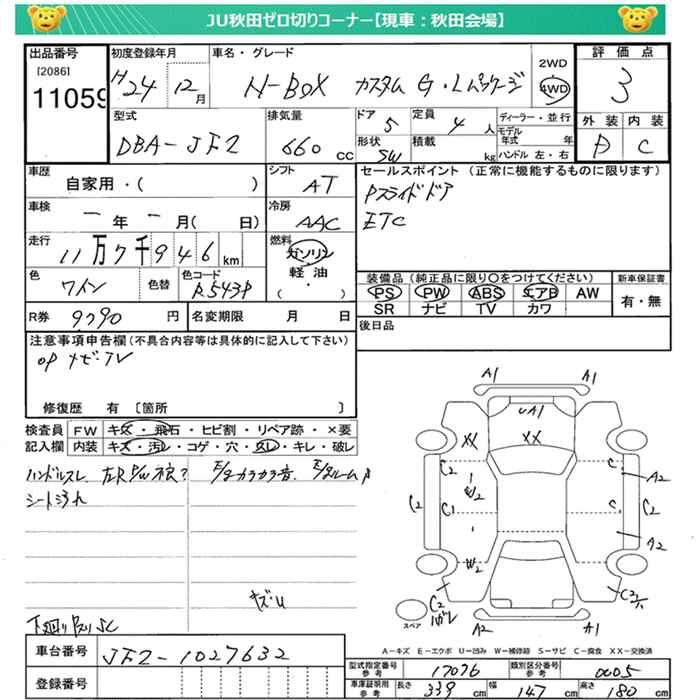 JU秋田ゼロ切りコーナー【現車：秋田会場】
出品番号 初度登録年月 車名・グレード 2WD 4WD 評価点
[2086]
11059 H24 12月 N-BOX カスタム G・Lパッケージ 3
型式 排気量 ドア 5 定員 4人 ディーラー・並行 外装 内装
DBA-JF2 660cc 形状 SW 積載 kg モデル年式 年 ハンドル 左・右 D C
車歴 シフト セールスポイント (正常に機能するものに限ります)
自家用・( ) AT Pスライドドア
車検 冷房 ETC
一年一月( 日) AAC
走行 燃料
11万7千946km ガソリン
軽油
( ・ )
色 色替 色コード 装備品 (純正品に限り〇をつけてください) 新車保証書
ワイン R543P PS PW ABS エアB AW 有・無
SR ナビ TV カワ
R券 9790円 名変期限 月 日 後日品
注意事項申告欄(不具合内容等は具体的に記入して下さい)
OP ナビ・TV
修復歴 有 〔箇所 〕
検査員 FW キズ・飛石・ヒビ割・リペア跡・×要
記入欄 内装 キズ・汚レ・コゲ・穴・スレ・キレ・破レ
ハンドルスレ 左R P/W不良? E/gカラカラ音. E/gルーム
シート汚れ
キズ・U
下廻り SC
A1 A1
UA1
XX XX
C2 C A2
W2
C2 C1 C C2
W2 A2
C2
A2 A1
スペア
A-キズ E-エクボ U-凹み W-補修跡 S-サビ C-腐食 XX-交換済
車台番号 JF2-1027632
型式指定番号 17076 類別区分番号 0005
登録番号 車庫証明用参考 長さ 339cm 幅 147cm 高さ 180cm